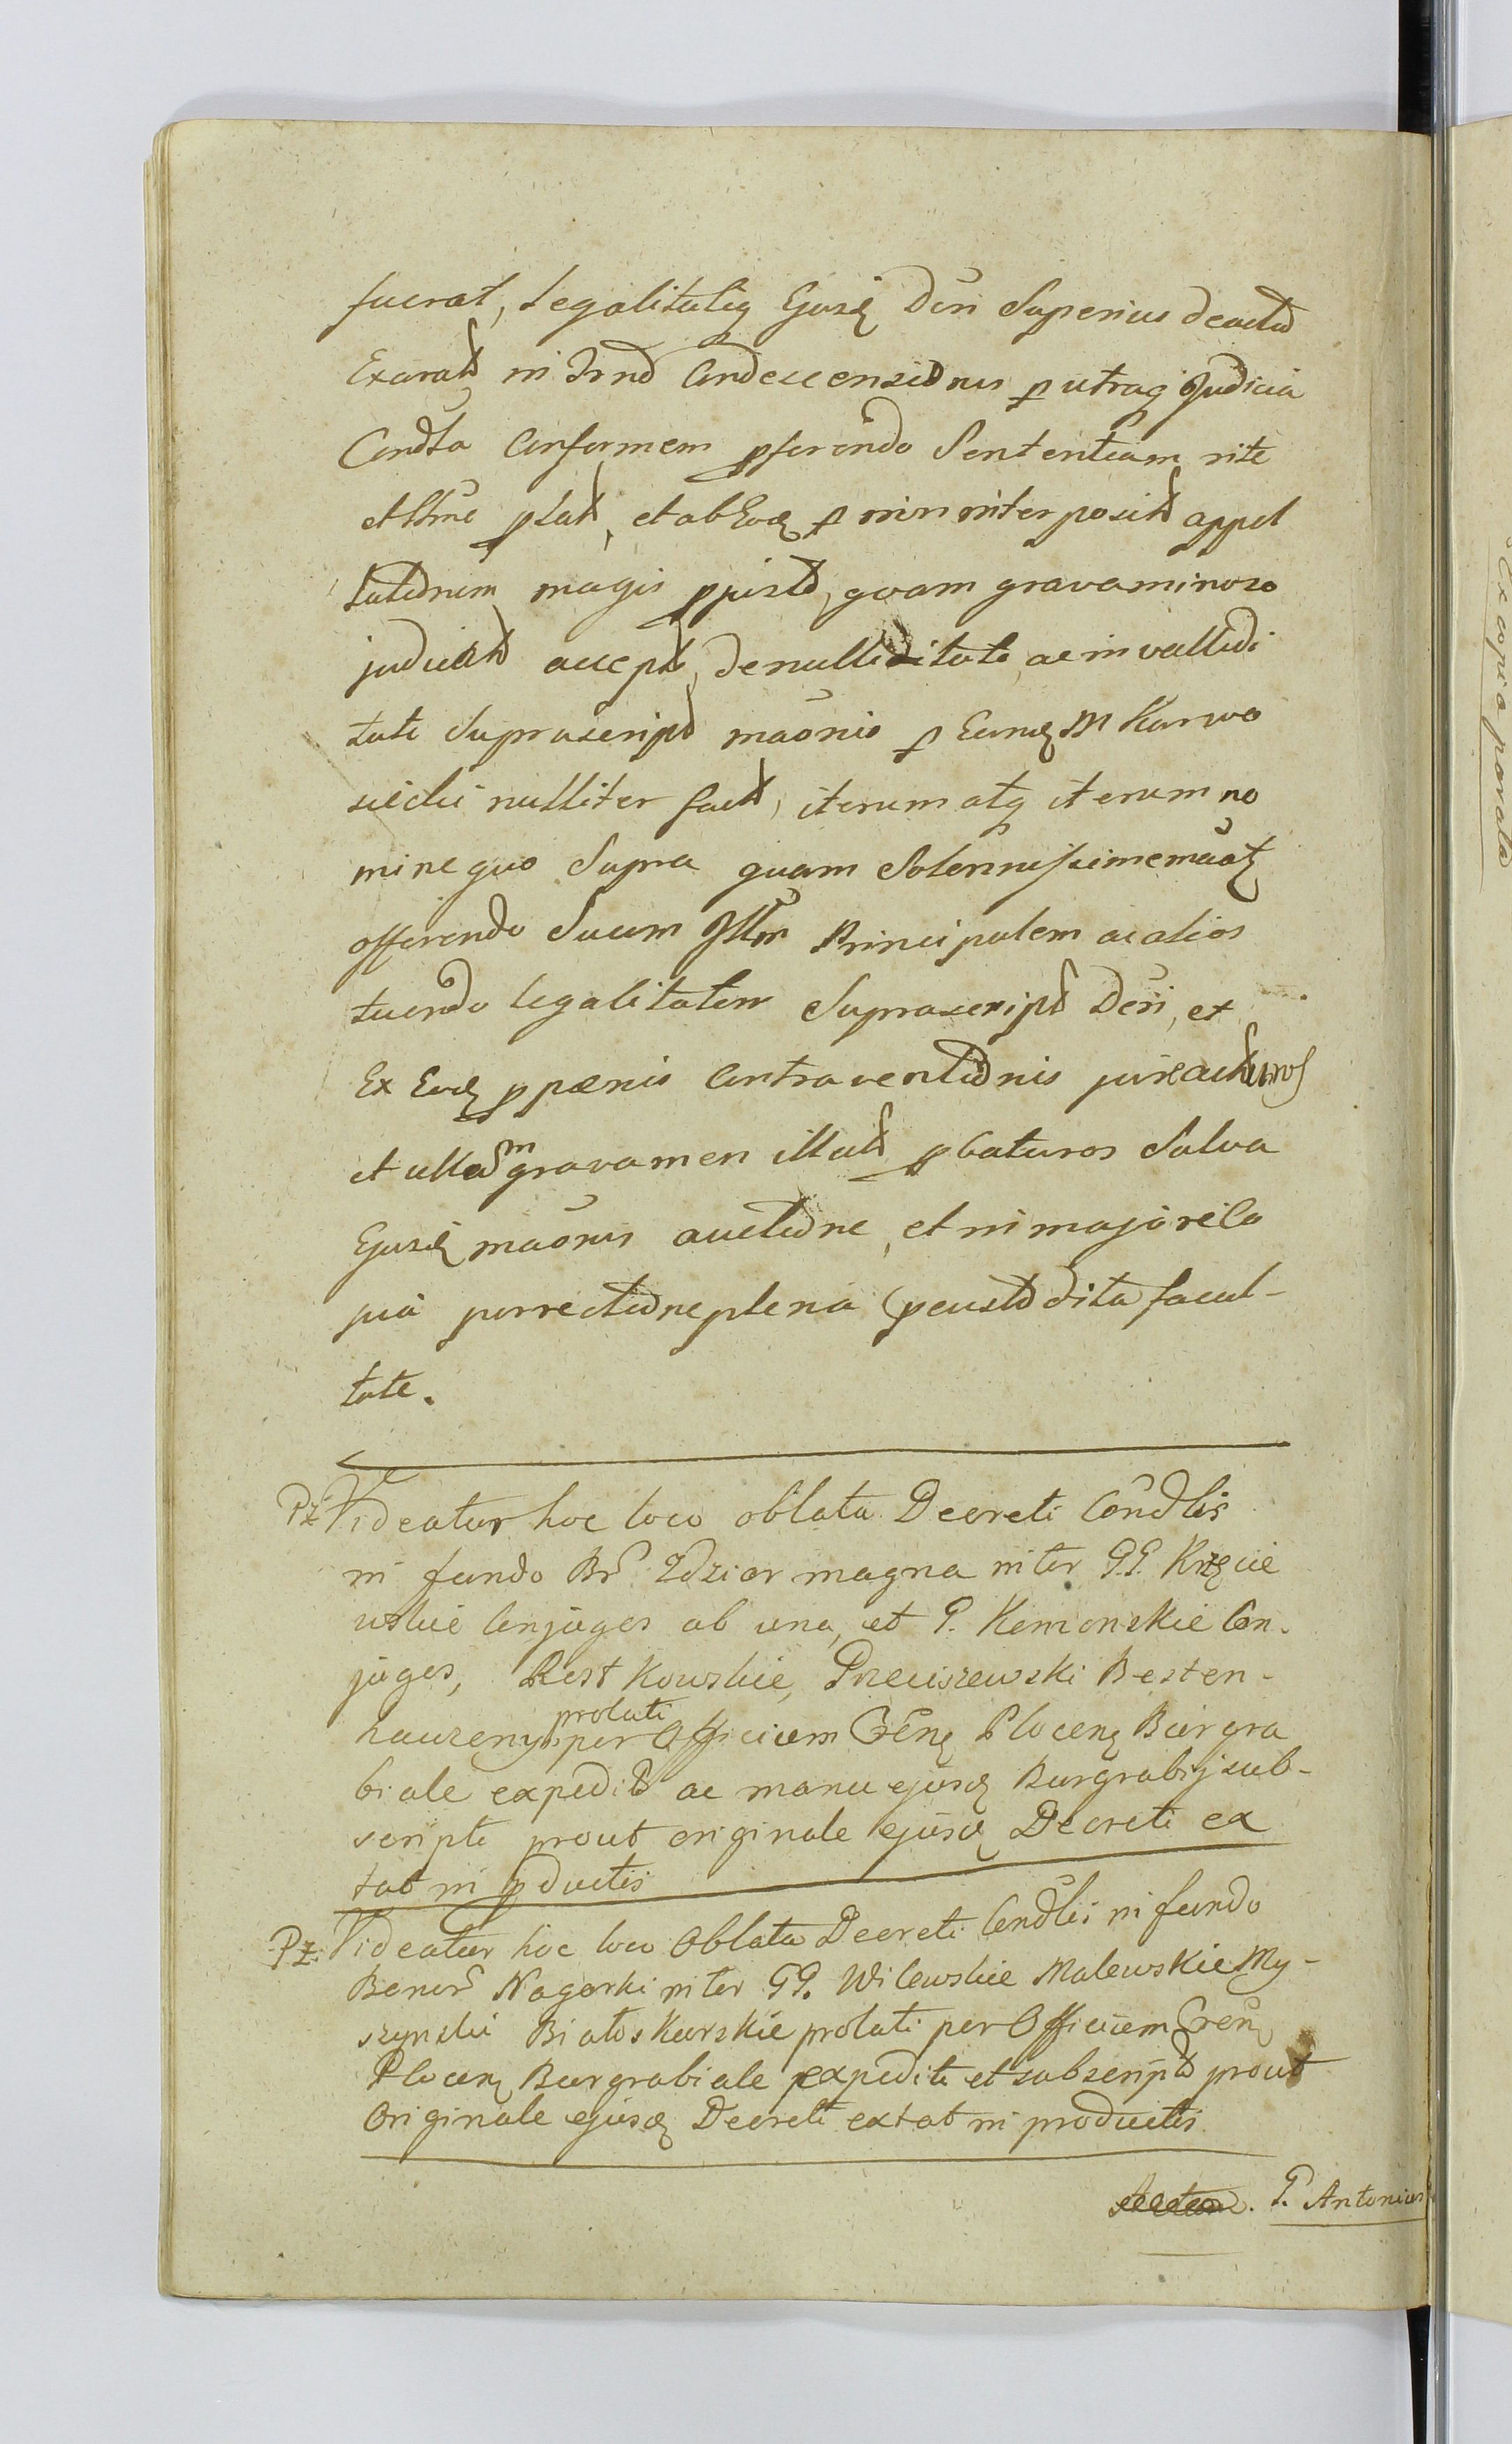 fuerat, Legalitatiq Ejusd Dēri Superius de actu
Exarat in Trno Condescensionis p utraq Judicia
Condta Conformem pferendo Sententiam rite
et plat, et ab Eod p min interposit appel
lationem magis pjusto, quam gravaminoso
judicato accept, de nulliditate, ac in vallidi
tate Suprascript māonis p Eund M Karwo
siecki nulliter fact, iterum atq iterum no
mine quo Supra quam Solennissime māat
offerendo Suum Illm Principalem ac alios
tuendo legalitatem Suprascript Dēri, et
Ex Eod p pænis Contraventionis jure acturos
et ullum gravamen illat pbaturos Salva
Ejusd māonis auctione, et ni majori Co
pia porrectione plena pcustodita facul-
tate.
Pz Videatur hoc loco oblata Decreti Condlis
in fundo Br Zdziar magna inter GG. Krzęcie
wskie Conjuges ab una, et G. Kemonskie Con-
juges, Rostkowskie, Preciszewski Besten-
hauzeny prolati per Officium Crēn Plocen Burgra
biale expedit ac manu ejusd Burgrabij sub-
scripti prout originale ejusd Decreti ex
tat in pductis
Pz. Videatur hoc loco Oblata Decreti Condlis in fundo
Bonor Nagorki inter GG. Wilewskie Malewskie My-
szynski Białoskurskie prolati per Officium Crēn
Plocen Burgrabiale expediti et subscript prout
Originale ejusd Decreti extat in productis
G. Antonius
ex copia parata